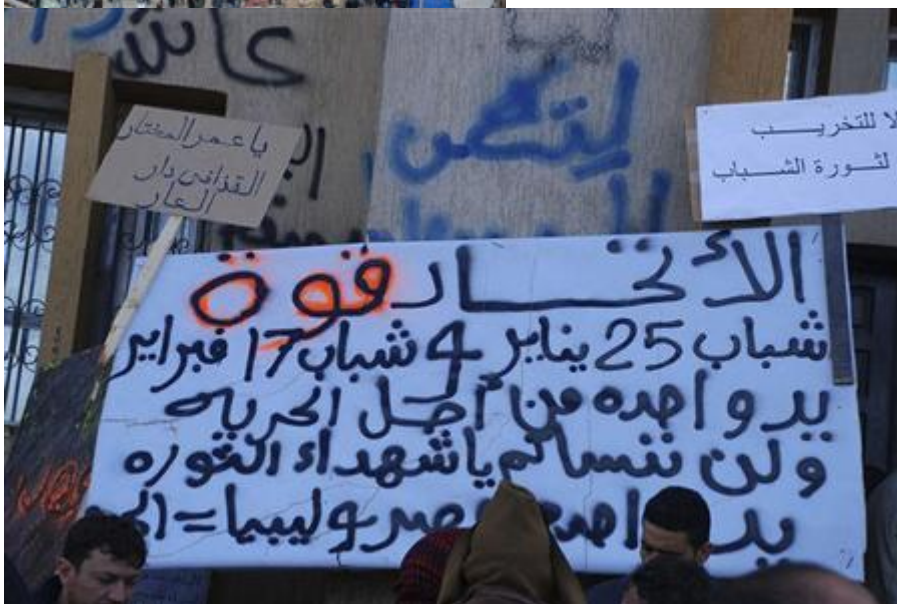 عائش
لتكن
يا عمر المختار
القذافي دار
العار
لا للتخريـــب
لثـــورة الشـــباب
الأتحـــاد قوة
شباب 25 يناير و شباب 17 فبراير
يد واحده من أجل الحرية
ولن ننساكم يا شهداء الثوره
يد واحدة مصر و ليبيا =